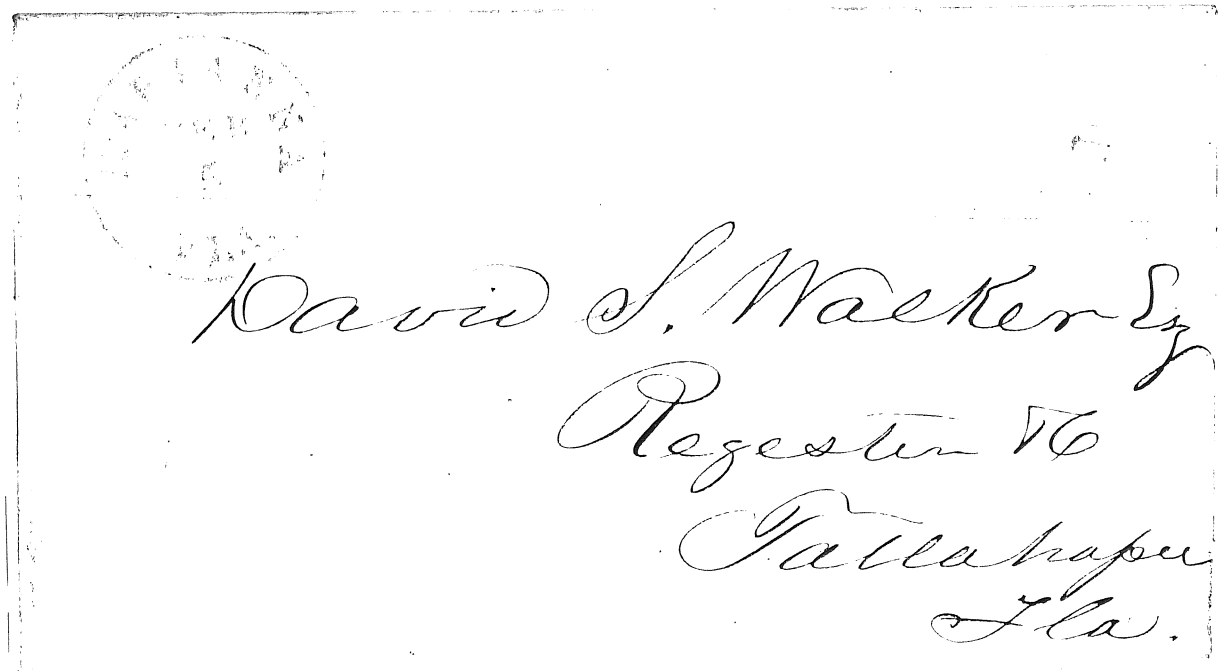 David S. Walker Esq
Regester &c
Tallahassee
Fla.